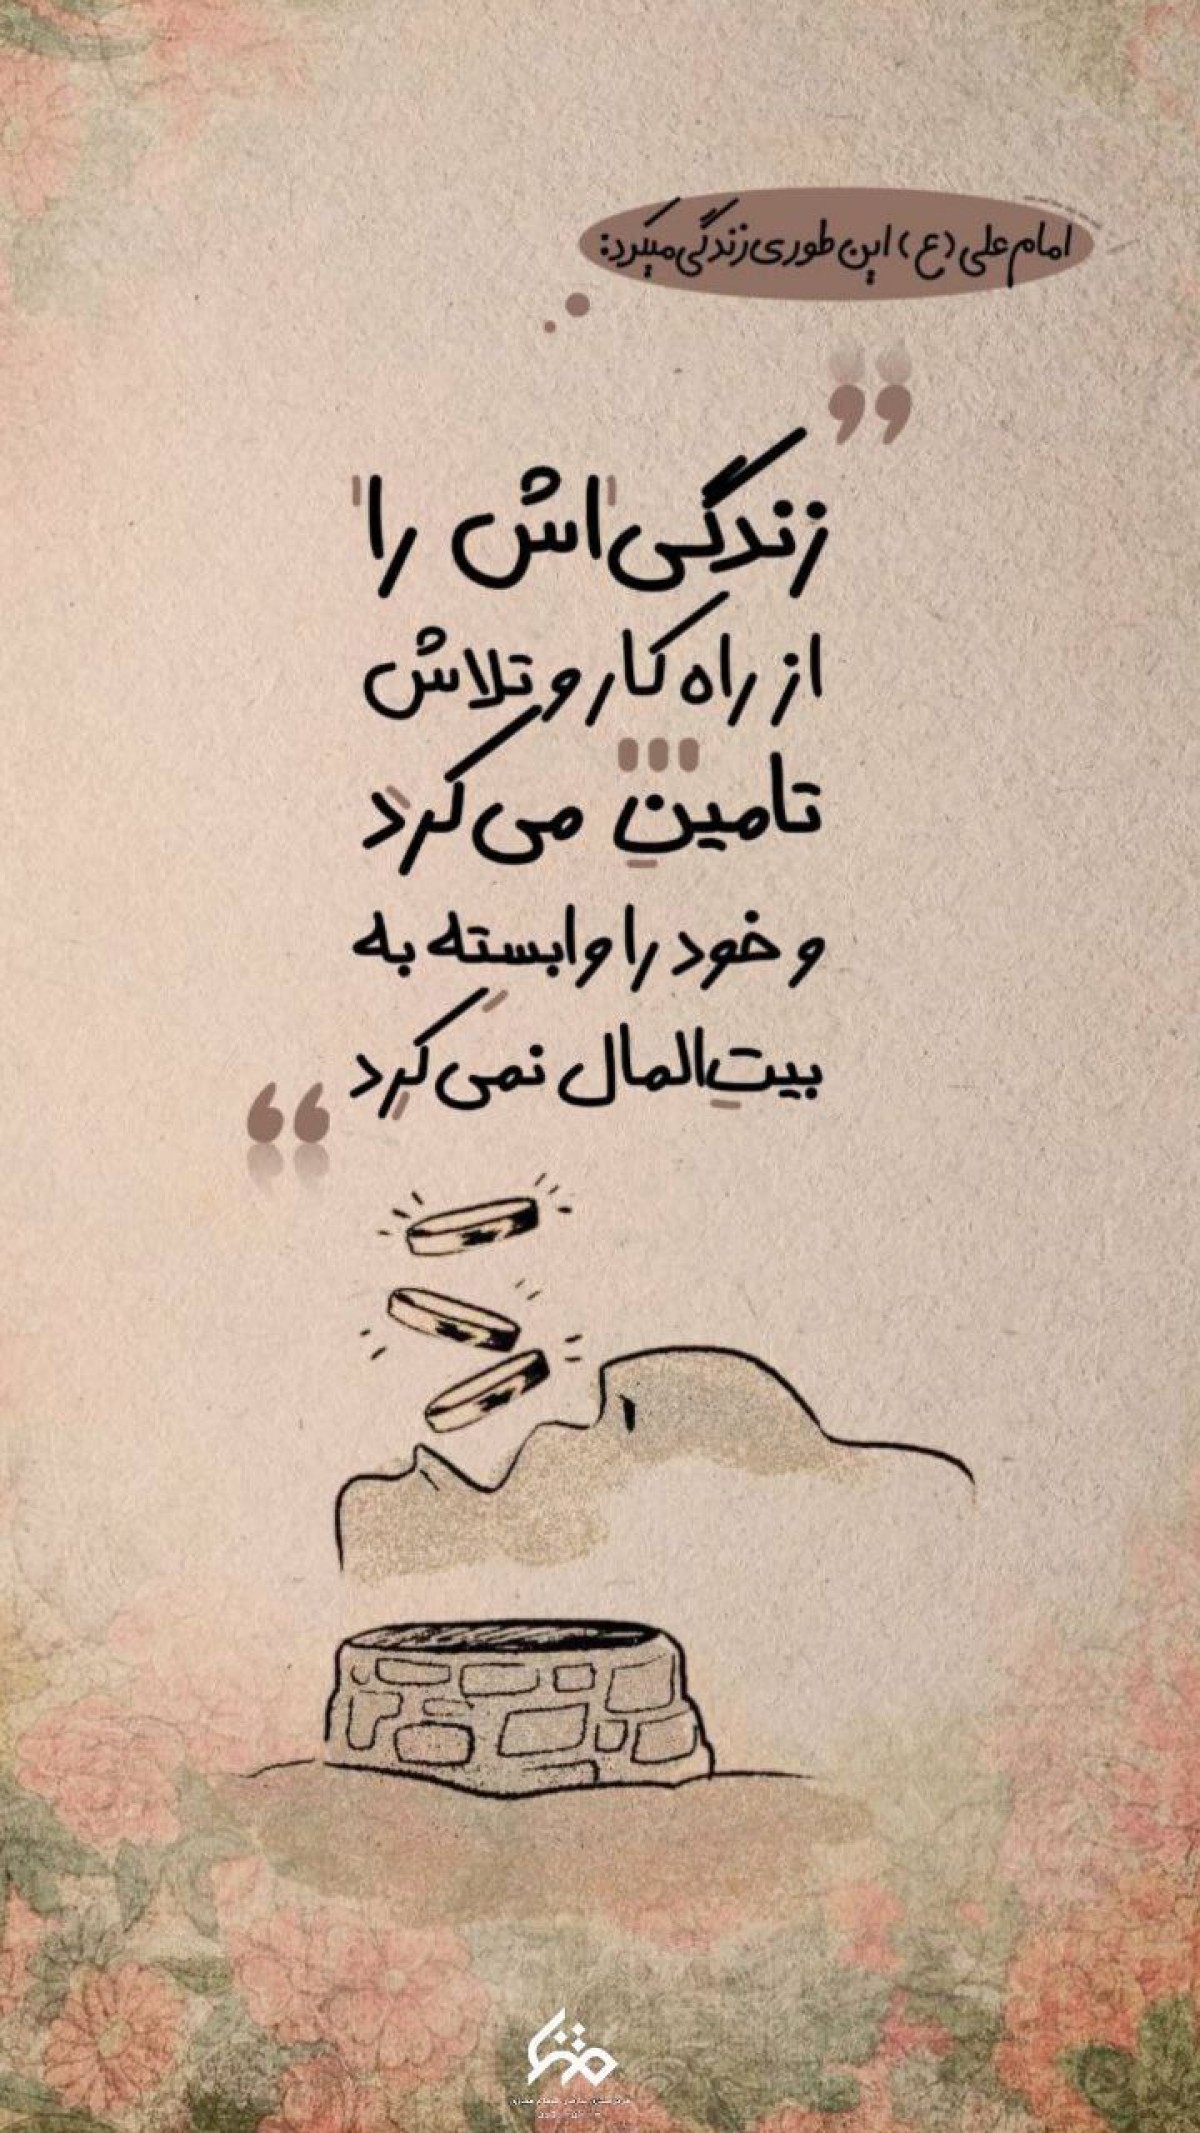 امام علی (ع) این طوری زندگی میکرد:
زندگی‌اش را
از راه کار و تلاش
تامین می‌کرد
و خود را وابسته به
بیت‌المال نمی‌کرد